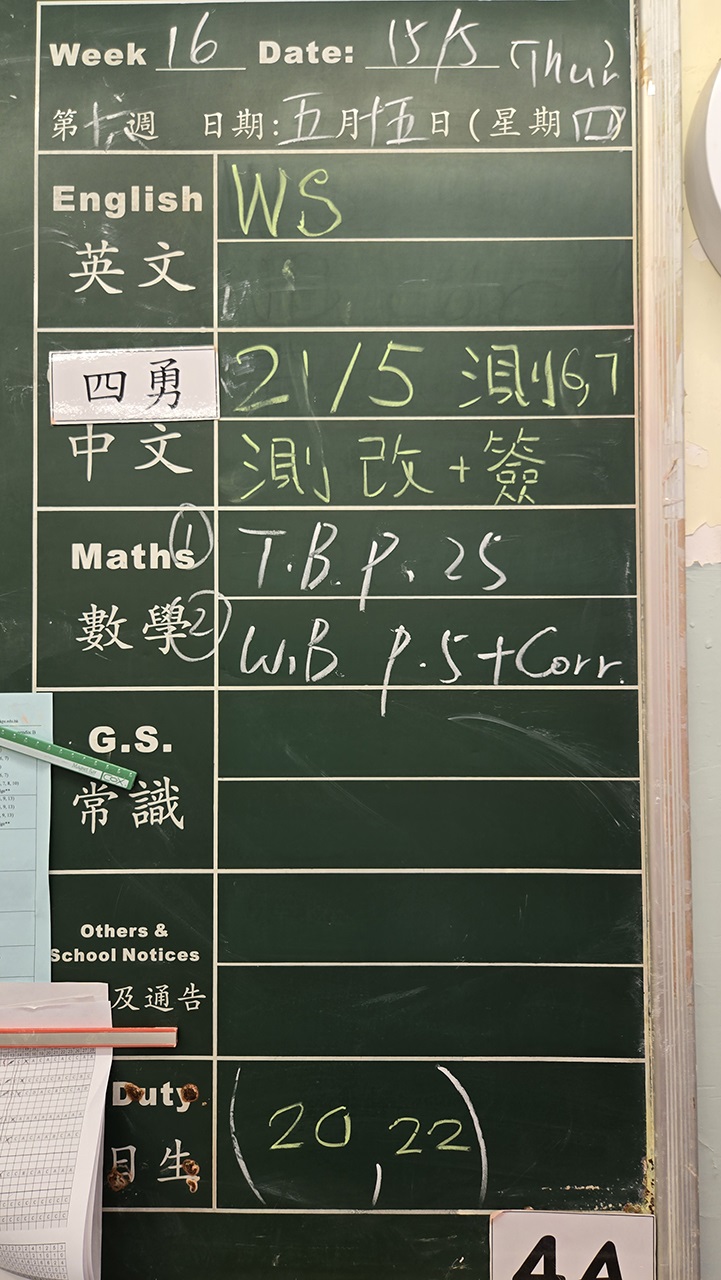 Week 16 Date: 15/5 (Thur)
第十六週 日期:五月十五日(星期四)
English WS
英文
四勇 21/5 測6,7
中文 測 改+簽
Maths ① T.B. p. 25
數學 ② W.B p.5+Corr.
G.S.
常識
Others &
School Notices
及通告
Duty (20, 22)
日生
4A